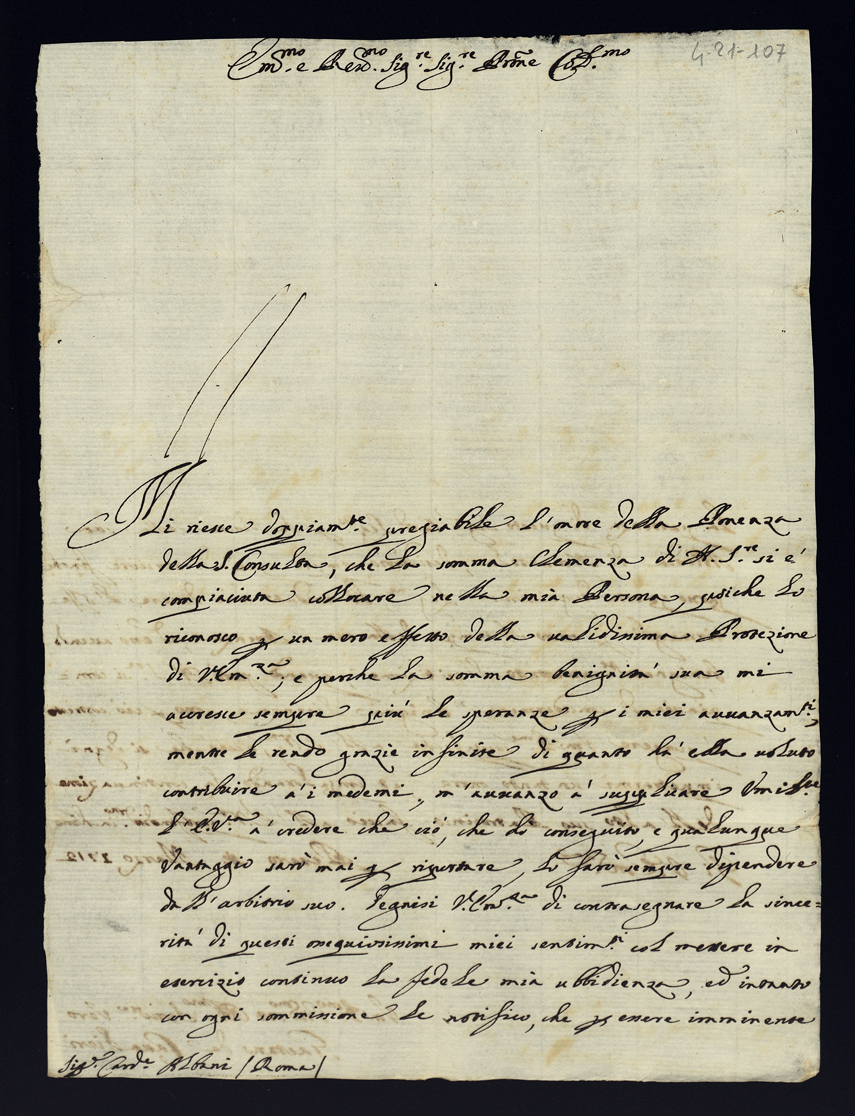 4-21-107
Em.mo e Rev.mo Sig.re Sig.re Prōne Col.mo
Mi riesce doppiam.te pregiabile l'onore della Ponenza
della S. Consulta, che la somma Clemenza di N. S.re si è
compiaciuta collocare nella mià Persona, poiche lo
riconosco p un mero effetto della validissima Protezione
di V. Em.za, e perche la somma benignità sua mi
accresce sempre più le speranze p i miei avvanzam.ti,
mentre le rendo grazie infinite di quanto hà ella voluto
contribuire à i medemi, m'avvanzo à supplicare Umilm.te
l'E. V.ra à credere che ciò, che hò conseguito, e qualunque
Vantaggio sarò mai p riportare, lo farò sempre dipendere
da ll'arbitrio suo. Degnisi V. Em.za di contrasegnare la since=
rità di questi ossequiosissimi miei sentim.ti col mettere in
esercizio continuo la fedele mià ubbidienza, ed intanto
con ogni sommissione le notifico, che p essere imminente
Sig.r Card.e Albani (Roma)